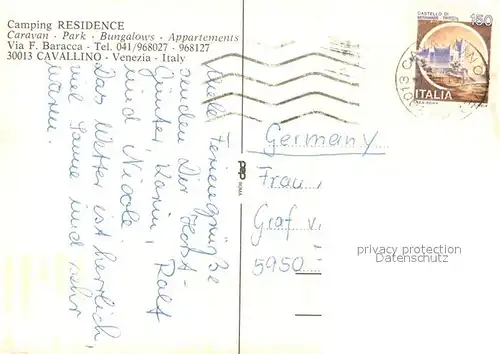 Camping RESIDENCE
Caravan - Park - Bungalows - Appartements
Via F. Baracca - Tel. 041/968027 - 968127
30013 CAVALLINO - Venezia - Italy
Viele Feriengrüße
senden Dir Horst-
Günter, Karin, Ralf
und Nicole.
Das Wetter ist herrlich,
viel Sonne und sehr
warm.
CASTELLO DI
150
ITALIA
30013 CA
Germany
Frau
Graf v.
5950
ROMA
privacy protection
Datenschutz